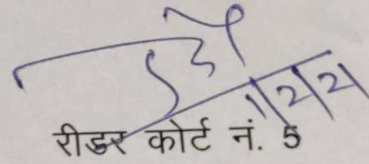 1/2/21
रीडर कोर्ट नं. 5